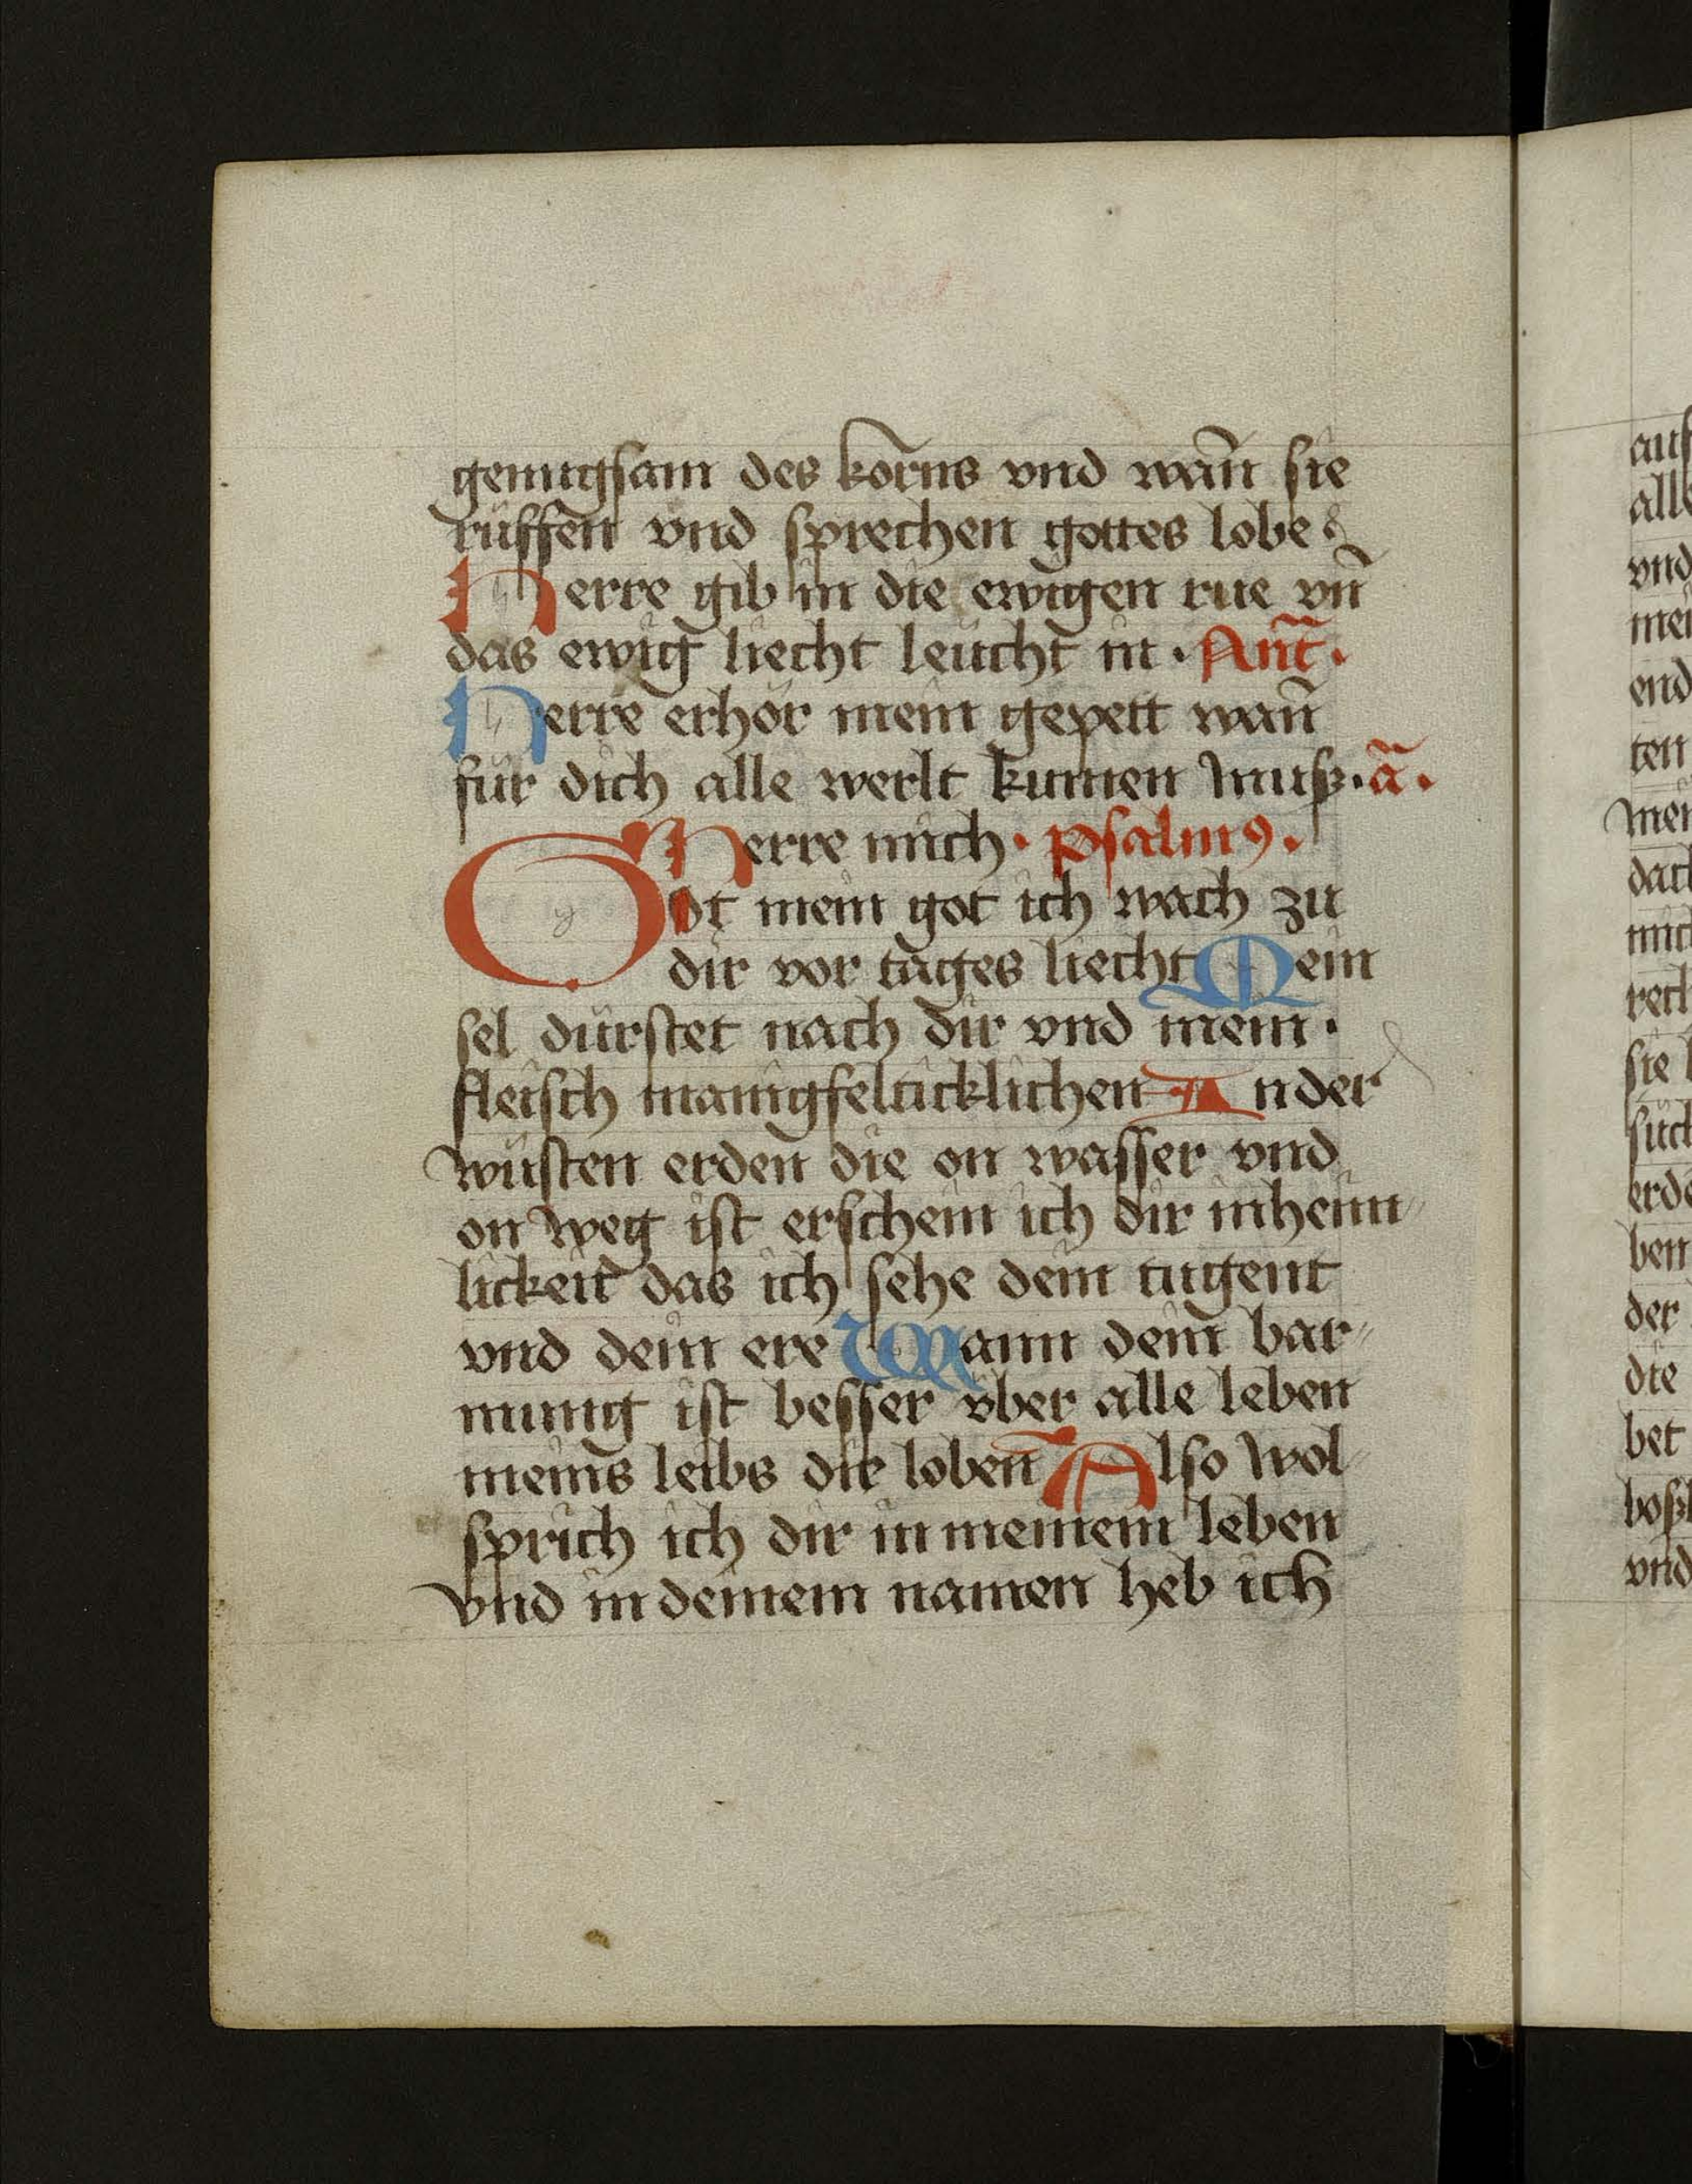 genugsam des korns vnd wan̄ sie
rüffen vnd sprechen gottes lobe
Herre gib in die ewigen rue vn̄
das ewig liecht leücht in · Ant̄ ·
Herre erhör mein gepett wan̄
für dich alle werlt kumen muß · ā ·
Herre mich · Psalmꝰ ·
Got mein got ich wach zu
dir vor tages liecht Mein
sel dürstet nach dir vnd mein ·
fleisch manigfelticklichen In der
wüsten erden die on wasser vnd
on weg ist erschein ich dir inheim
lickeit das ich sehe dein tugent
vnd dein ere Wann dein bar
mung ist besser vber alle leben
meins leibs die loben Also wol
sprich ich dir in meinem leben
vnd in deinem namen heb ich